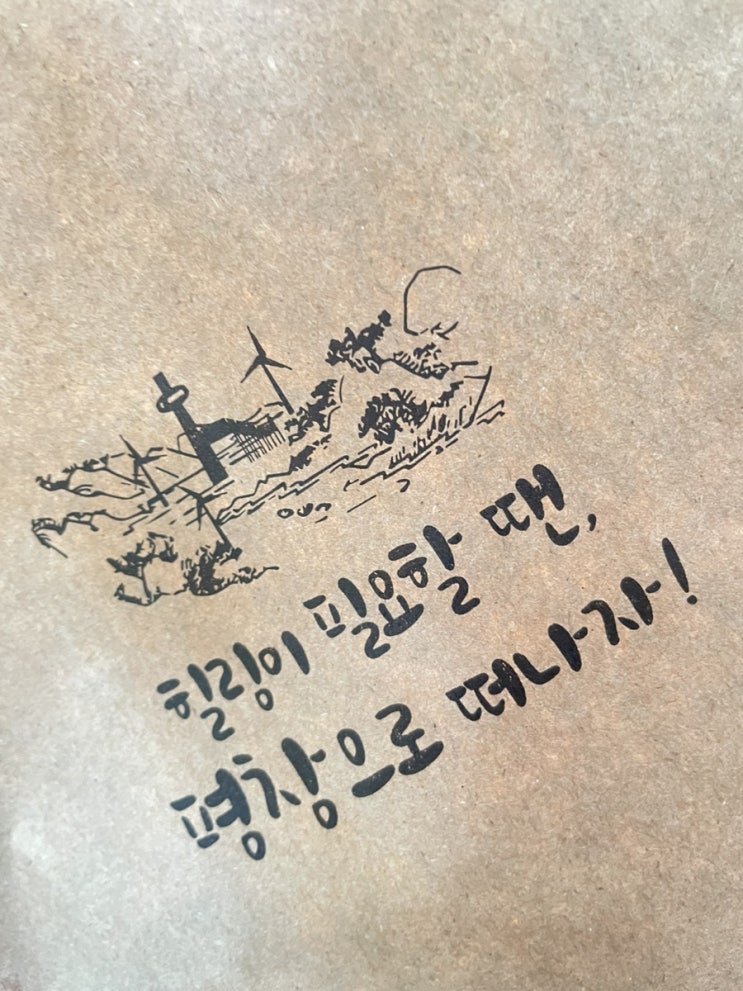 힐링이 필요할 땐,
평창으로 떠나자!